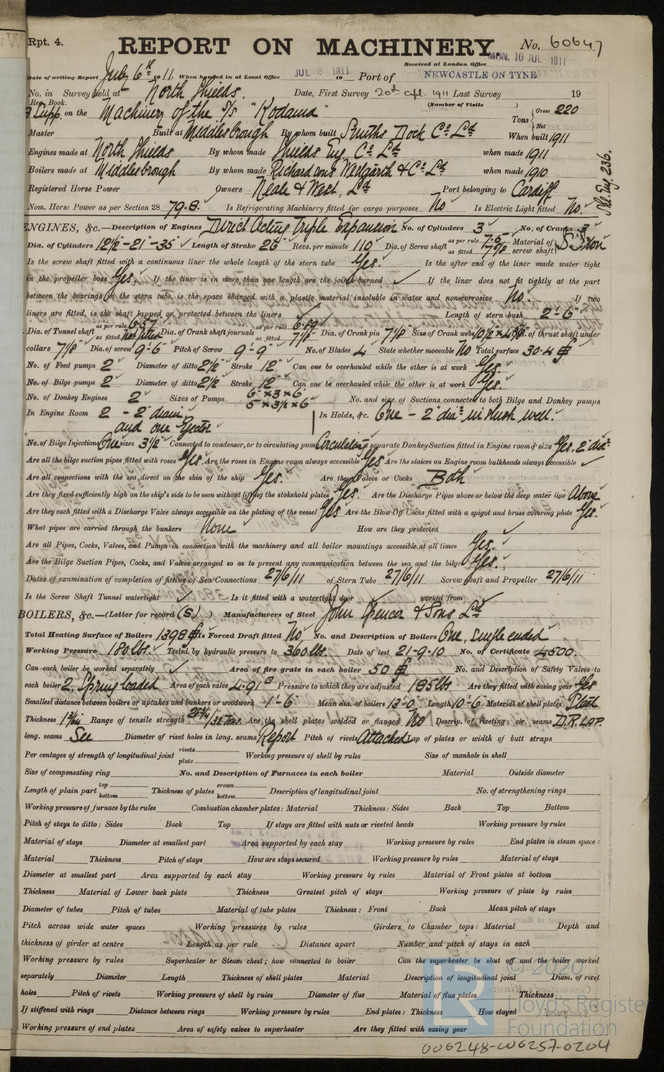 Rpt. 4. REPORT ON MACHINERY. No. 60647
Received at London Office MON. 10 JUL 1911
Date of writing Report July 6th 1911 When handed in at Local Office JUL 8 1911 19 Port of NEWCASTLE ON TYNE
No. in Survey held at North Shields. Date, First Survey 20th Apl. 1911 Last Survey 19
Reg. Book. (Number of Visits
Supp on the Machinery of the S/S "Kodama" Tons Gross 220 Net
Master Built at Middlesbrough By whom built Smiths Dock Co. Ld. When built 1911
Engines made at North Shields By whom made Shields Eng. Co. Ld. when made 1911
Boilers made at Middlesbrough By whom made Richardsons Westgarth & Co. Ld. when made 1910
Registered Horse Power Owners Neale & West, Ld. Port belonging to Cardiff
Nom. Horse Power as per Section 28 79.8. Is Refrigerating Machinery fitted for cargo purposes No Is Electric Light fitted No.
ENGINES, &c.—Description of Engines Direct Acting Triple Expansion No. of Cylinders 3 No. of Cranks 3
Dia. of Cylinders 12½-21-35 Length of Stroke 26" Revs. per minute 110 Dia. of Screw shaft as per rule as fitted Material of screw shaft
Is the screw shaft fitted with a continuous liner the whole length of the stern tube Yes. Is the after end of the liner made water tight
in the propeller boss Yes. If the liner is in more than one length are the joints burned If the liner does not fit tightly at the part
between the bearings in the stern tube, is the space charged with a plastic material insoluble in water and non-corrosive No. If two
liners are fitted, is the shaft lapped or protected between the liners Length of stern bush 2'-6"
Dia. of Tunnel shaft as per rule as fitted Dia. of Crank shaft journals as per rule as fitted Dia. of Crank pin 7⅛ Size of Crank webs Dia. of thrust shaft under
collars 7⅛ Dia. of screw 9-6 Pitch of Screw 9-9 No. of Blades 4 State whether moveable No Total surface 30.4
No. of Feed pumps 2 Diameter of ditto 2½ Stroke 12" Can one be overhauled while the other is at work Yes.
No. of Bilge pumps 2 Diameter of ditto 2½ Stroke 12" Can one be overhauled while the other is at work Yes.
No. of Donkey Engines 2 Sizes of Pumps 6×3×6 5×3½×6 No. and size of Suctions connected to both Bilge and Donkey pumps
In Engine Room 2 - 2" diam. In Holds, &c. One - 2" dia. in slush well.
and one
No. of Bilge Injections One sizes 3½ Connected to condenser, or to circulating pump Circulating separate Donkey Suction fitted in Engine room & size Yes. 2" dia.
Are all the bilge suction pipes fitted with roses Yes. Are the roses in Engine room always accessible Yes Are the sluices on Engine room bulkheads always accessible
Are all connections with the sea direct on the skin of the ship Yes. Are they Valves or Cocks Both
Are they fixed sufficiently high on the ship's side to be seen without lifting the stokehold plates Yes. Are the Discharge Pipes above or below the deep water line Above
Are they each fitted with a Discharge Valve always accessible on the plating of the vessel Yes Are the Blow Off Cocks fitted with a spigot and brass covering plate Yes.
What pipes are carried through the bunkers None How are they protected
Are all Pipes, Cocks, Valves, and Pumps in connection with the machinery and all boiler mountings accessible at all times Yes.
Are the Bilge Suction Pipes, Cocks, and Valves arranged so as to prevent any communication between the sea and the bilges Yes.
Dates of examination of completion of fitting of Sea Connections 27/6/11 of Stern Tube 27/6/11 Screw shaft and Propeller 27/6/11
Is the Screw Shaft Tunnel watertight Is it fitted with a watertight door worked from
BOILERS, &c.—(Letter for record (S) Manufacturers of Steel John Spencer & Sons Ld.
Total Heating Surface of Boilers 1398 Is Forced Draft fitted No. No. and Description of Boilers One, single ended
Working Pressure 180 lbs. Tested by hydraulic pressure to 360 lbs. Date of test 21-9-10 No. of Certificate 4500.
Can each boiler be worked separately Area of fire grate in each boiler 50 No. and Description of Safety Valves to
each boiler 2, Spring loaded Area of each valve 4.91 Pressure to which they are adjusted 185 lbs Are they fitted with easing gear Yes
Smallest distance between boilers or uptakes and bunkers or woodwork 1'-6 Mean dia. of boilers 13-0 Length 10-6 Material of shell plates Steel
Thickness Range of tensile strength Are the shell plates welded or flanged No Descrip. of riveting: cir. seams D.R. Lap.
long. seams See Diameter of rivet holes in long. seams Report Pitch of rivets Attached Lap of plates or width of butt straps
Per centages of strength of longitudinal joint rivets plate Working pressure of shell by rules Size of manhole in shell
Size of compensating ring No. and Description of Furnaces in each boiler Material Outside diameter
Length of plain part top bottom Thickness of plates crown bottom Description of longitudinal joint No. of strengthening rings
Working pressure of furnace by the rules Combustion chamber plates: Material Thickness: Sides Back Top Bottom
Pitch of stays to ditto: Sides Back Top If stays are fitted with nuts or riveted heads Working pressure by rules
Material of stays Diameter at smallest part Area supported by each stay Working pressure by rules End plates in steam space:
Material Thickness Pitch of stays How are stays secured Working pressure by rules Material of stays
Diameter at smallest part Area supported by each stay Working pressure by rules Material of Front plates at bottom
Thickness Material of Lower back plate Thickness Greatest pitch of stays Working pressure of plate by rules
Diameter of tubes Pitch of tubes Material of tube plates Thickness: Front Back Mean pitch of stays
Pitch across wide water spaces Working pressures by rules Girders to Chamber tops: Material Depth and
thickness of girder at centre Length as per rule Distance apart Number and pitch of stays in each
Working pressure by rules Superheater or Steam chest; how connected to boiler Can the superheater be shut off and the boiler worked
separately Diameter Length Thickness of shell plates Material Description of longitudinal joint Diam. of rivet
holes Pitch of rivets Working pressure of shell by rules Diameter of flue Material of flue plates Thickness
If stiffened with rings Distance between rings Working pressure by rules End plates: Thickness How stayed
Working pressure of end plates Area of safety valves to superheater Are they fitted with easing gear
© 2020
Lloyd's Register
Foundation
006248-006257-0204